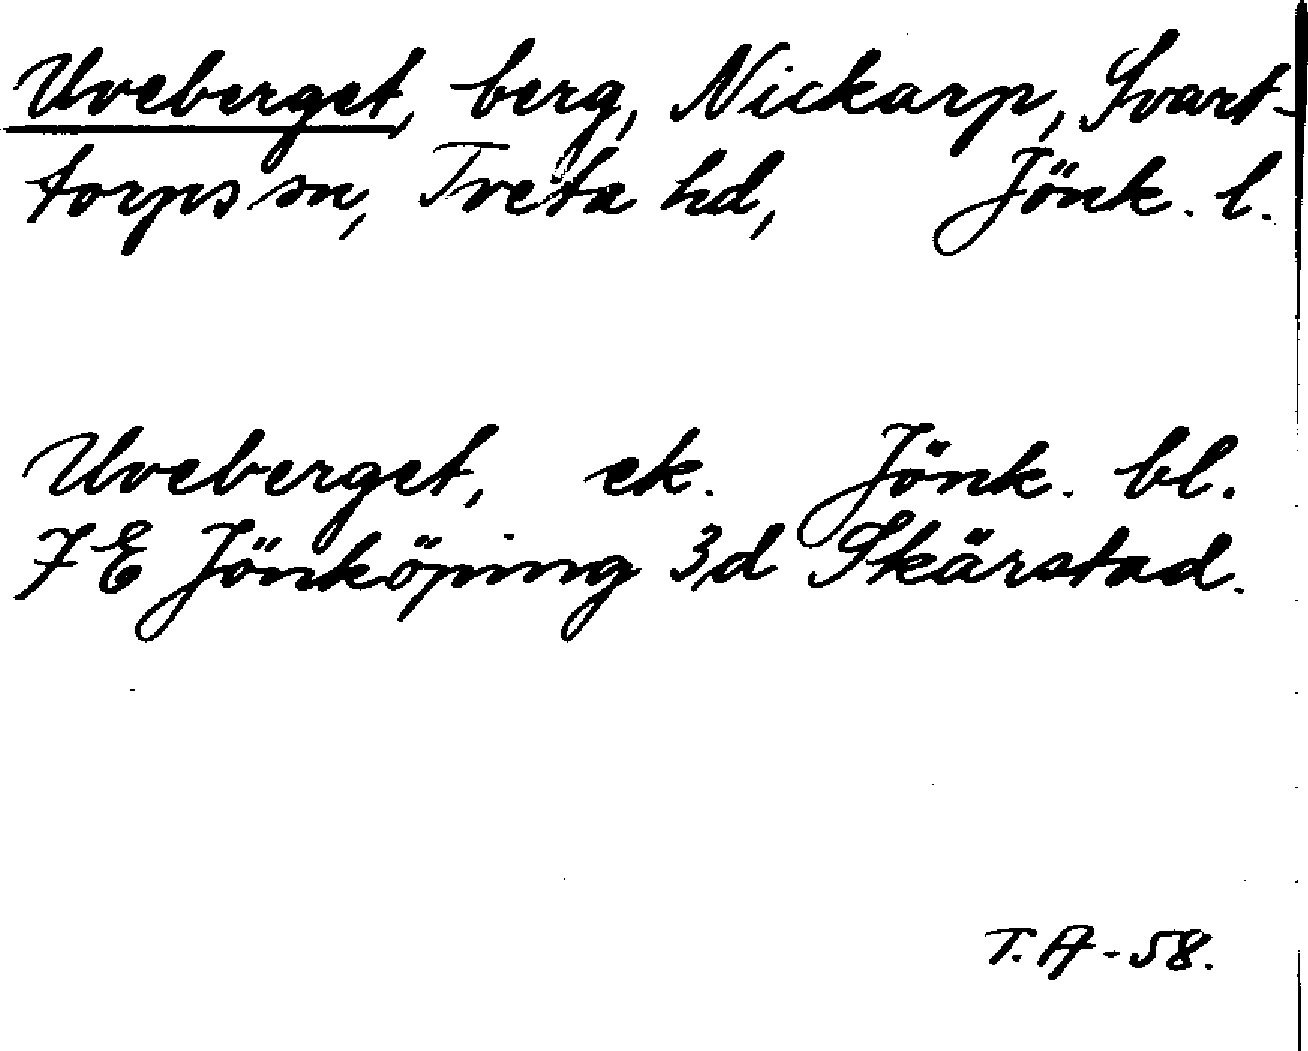 Uveberget, berg, Nickarp, Svart-
torps sn, Tveta hd, Jönk. l.
Uveberget, ek. Jönk. bl.
7 E Jönköping 3d Skärstad.
T. A - 58.